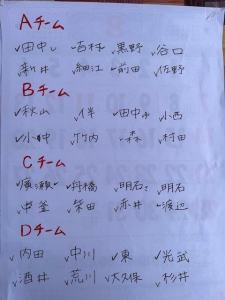 Aチーム
✓田中し ✓西村 ✓黒野 ✓谷口
✓新井 ✓細江 ✓前田 ✓佐野
Bチーム
✓秋山 ✓伴 ✓田中み ✓小西
✓小中 ✓竹内 ✓森 ✓村田
Cチーム
✓廣瀬 ✓舟橋 ✓明石 ✓明石
✓中釜 ✓柴田 ✓赤井 ✓渡辺
Dチーム
✓内田 ✓中川 ✓東 ✓光武
✓酒井 ✓荒川 ✓大久保 ✓杉井